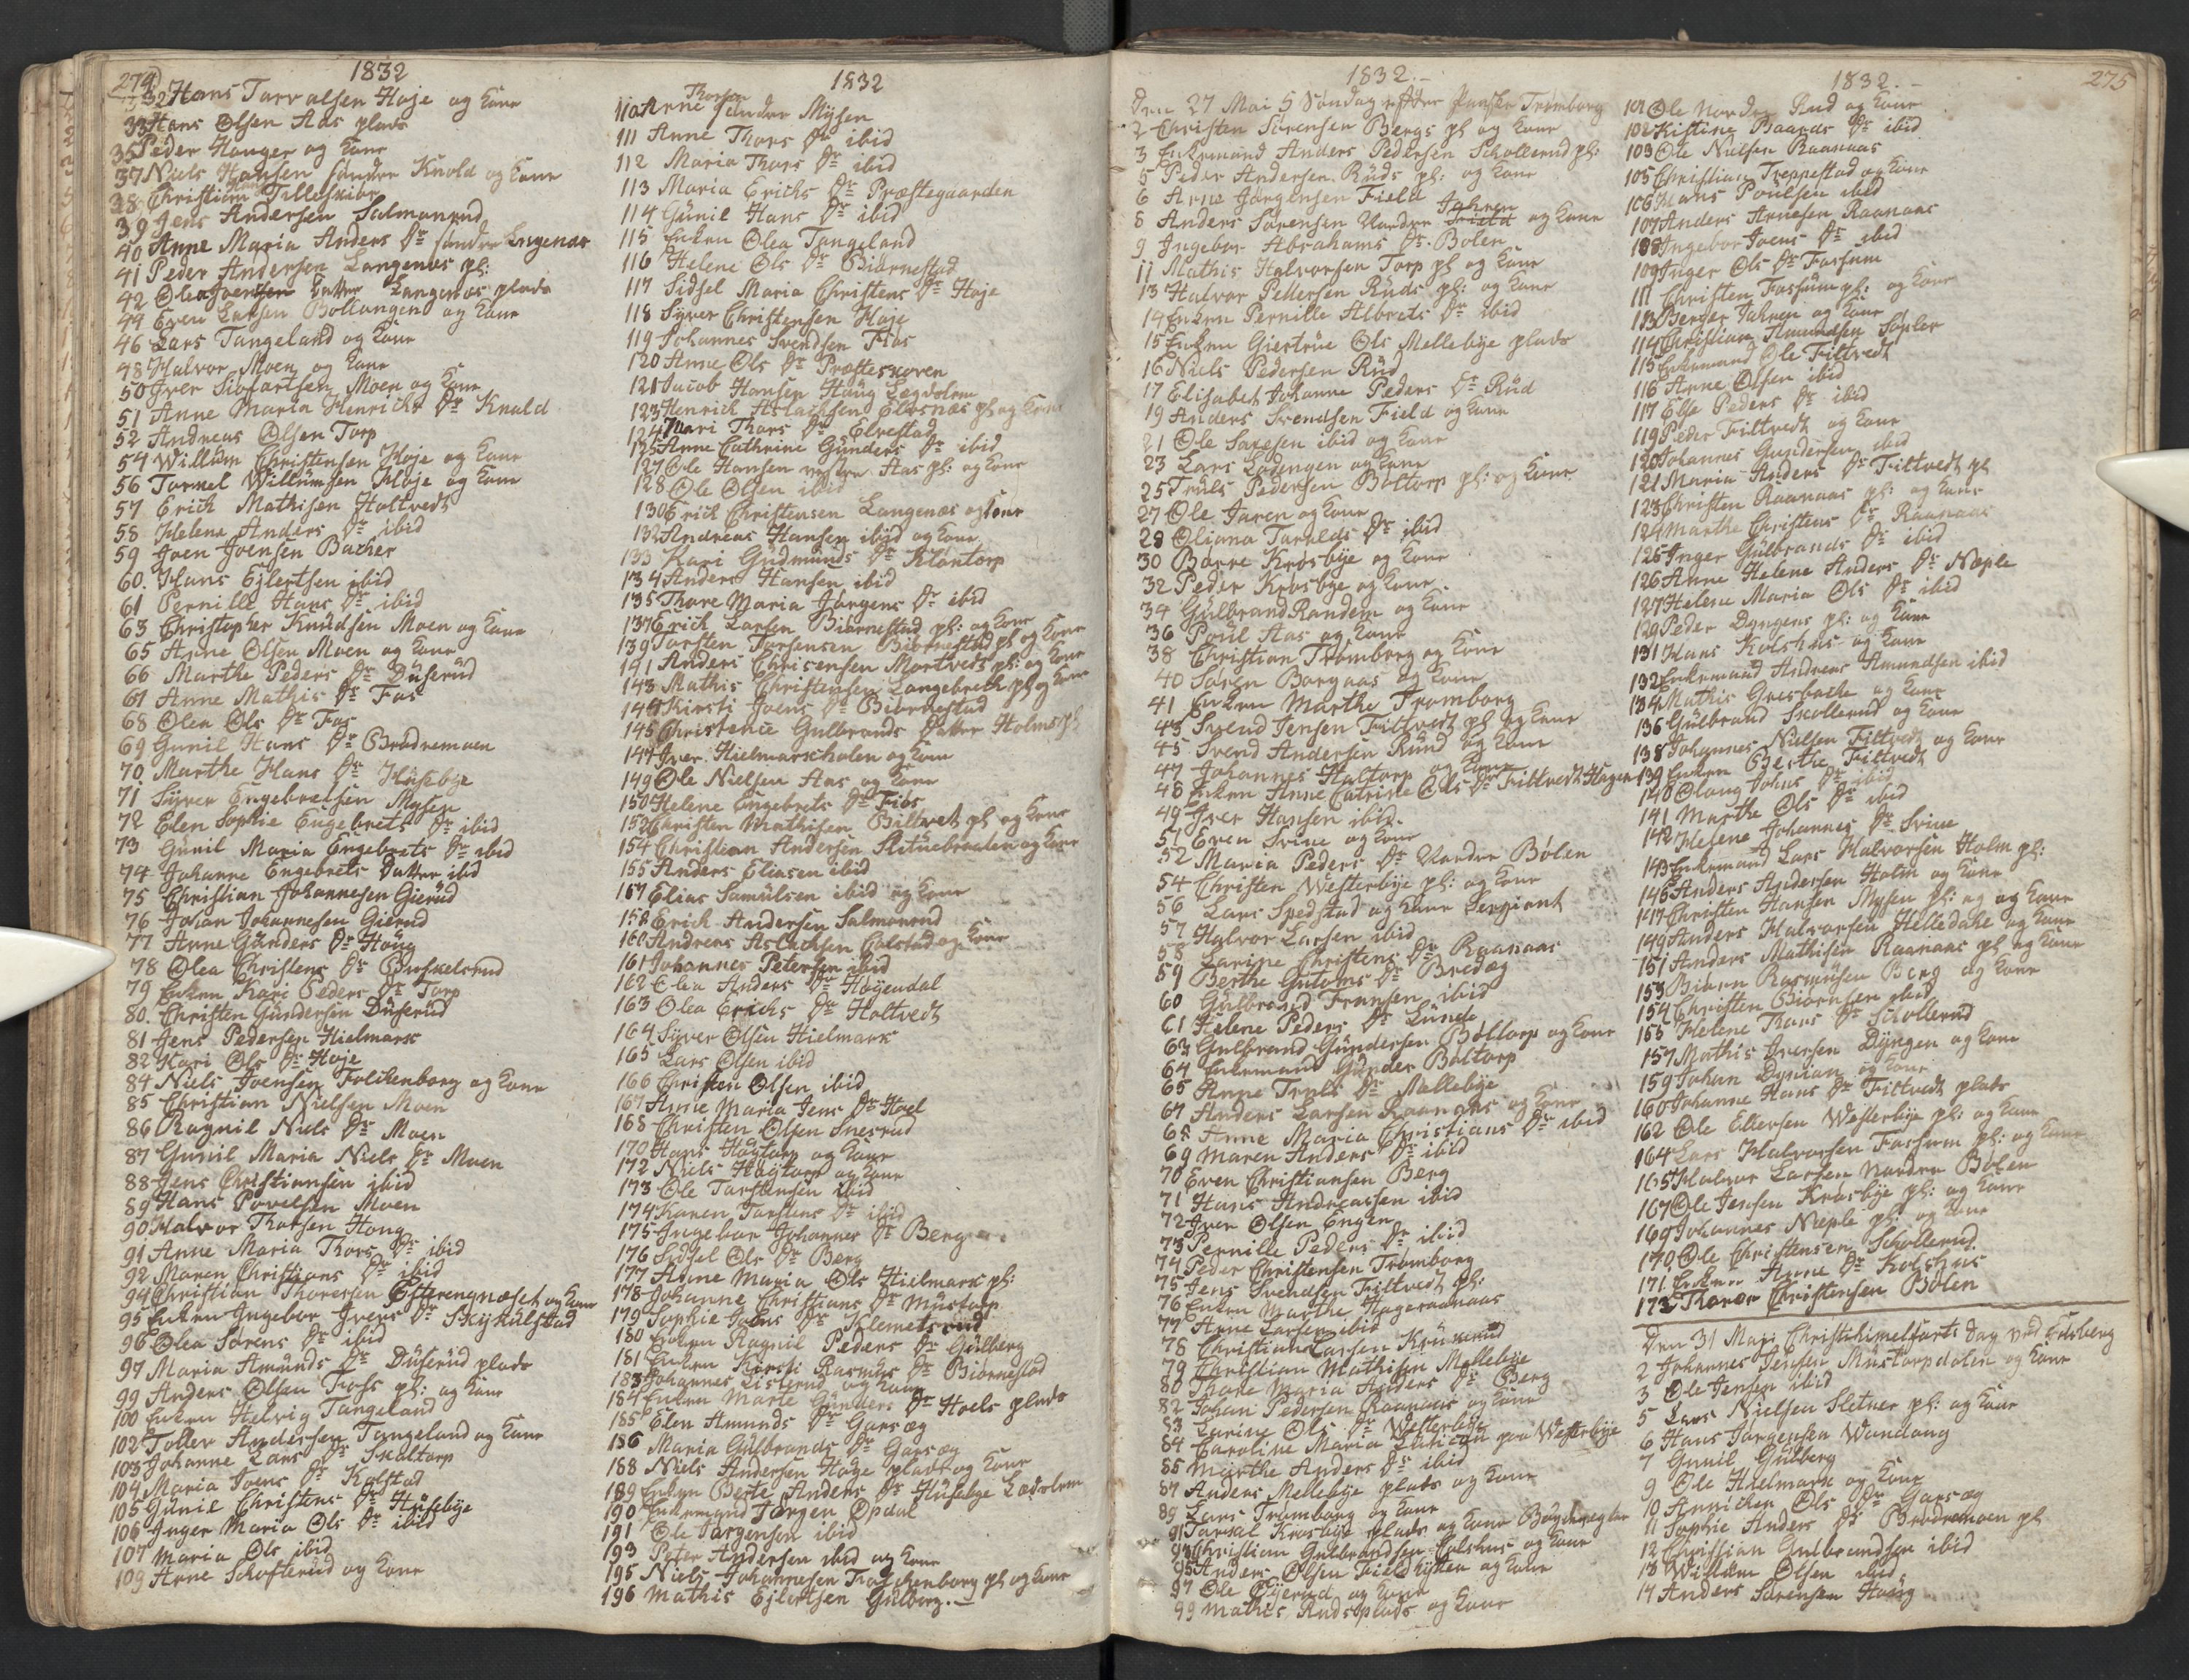 274
1832
32 Hans Torvalsen Høje og Kone
33 Hans Olsen Aas plads
35 Peder Hauger og Kone
37 Niels Hansen søndre Knold og Kone
38 Christian Tilleskiør
39 Jens Andersen Salmonrud
40 Anne Maria Anders Dr søndre Langenæs
41 Peder Andersen Langenæs pl:
42 Olea Datter Langenæs plads
44 Even Larsen Bollangen og Kone
46 Lars Tangeland og Kone
48 Halvor Moen og Kone
50 Iver Siofartsen Moen og Kone
51 Anne Maria Henrichs Dr Knold
52 Andreas Olsen Torp
54 Willum Christensen Høje og Kone
56 Tormel Willumsen Høje og Kone
57 Erich Mathisen Holtvedt
58 Helene Anders Dr ibid
59 Joen Joensen Bacher
60. Hans Ejlertsen ibid
61 Pernille Hans Dr ibid
63 Christopher Knudsen Moen og Kone
65 Arne Olsen Moen og Kone
66 Marthe Peders Dr Düserüd
67 Anne Mathis Dr Fos
68 Olea Ols Dr Fos
69 Gunil Hans Dr Brødremoen
70 Marthe Hans Dr Hüsebye
71 Syver Engebretsen Mysen
72 Elen Sophie Engebrets Dr ibid
73 Gunil Maria Engebrets Dr ibid
74 Johanne Engebrets Datter ibid
75 Christian Johannesen Gierüd
76 Johan Johannesen Gierud
77 Anne Günders Dr Houg
78 Olea Christens Dr Buskelsrud
79 Enken Kari Peders Dr Torp
80. Christen Gündersen Düserüd
81 Jens Pedersen Hielmark
82 Kari Ols Dr Høje
84 Niels Joensen Folkenborg og Kone
85 Christian Nielsen Moen
86 Ragnil Niels Dr Moen
87 Gunil Maria Niels Dr Moen
88 Jens Christiansen ibid
89 Hans Povelsen Moen
90 Halvor Thorsen Houg
91 Anne Maria Thors Dr ibid
92 Maren Christians Dr ibid
94 Christian Thoresen Østerengnæset og Kone
95 Enken Ingebor Ivers Dr Skjikülstad
96 Olea Sørens Dr ibid
97 Maria Amünds Dr Düserüd plads
99 Anders Olsen Foss pl: og Kone
100 Enken Helvig Tangeland
102 Toller Andersen Tangeland og Kone
103 Johanne Lars Dr Skaltorp
104 Maria Joens Dr Kolstad
105 Günil Christens Dr Hüsebye
106 Inger Maria Ols Dr ibid
107 Maria Ols ibid
109 Arne Schofterüd og Kone
1832
110 Arne Thorsen søndre Mysen
111 Anne Thors Dr ibid
112 Maria Thors Dr ibid
113 Maria Erichs Dr Præstegaarden
114 Günil Hans Dr ibid
115 Enken Olea Tangeland
116 Helene Ols Dr Biørnestad
117 Sidsel Maria Christens Dr Høje
118 Syver Christensen Høje
119 Johannes Svendsen Fros
120 Anne Ols Dr Præsteskoven
121 Jacob Hansen Houg Lægdslem
123 Henrich Aslachsen Elvesnæs pl og Kone
124 Mari Thors Dr Elvestad
125 Anne Cathrine Günders Dr ibid
127 Ole Hansen vestre Aas pl: og Kone
128 Ole Olsen ibid
130 Erich Christensen Langenæs og Kone
132 Andreas Hansen ibid og Kone
133 Kari Gudmunds Dr Kløntorp
134 Anders Hansen ibid
135 Thore Maria Jørgens Dr ibid
137 Erich Larsen Biørnestad pl: og Kone
139 Torsten Torsensen Biørnestad pl og Kone
141 Anders Chrisensen Mortveds pl: og Kone
143 Mathis Christensen Langebreck pl og Kone
144 Kirsti Joens Dr Biørnestad
145 Christence Gulbrands Datter Holms pl
147 Iver Hielmarscholen og Kone
149 Ole Nielsen Aas og Kone
150 Helene Engebrets Dr Fiøs
152 Christen Mathisen Biltvet pl og Kone
154 Christian Andersen Slitüebraaten og Kone
155 Anders Eliasen ibid
157 Elias Samülsen ibid og Kone
158 Erich Andersen Salmonrud
160 Andreas Aslachsen Colstad og Kone
161 Johannes Petersen ibid
162 Olea Anders Dr Høyendal
163 Olea Erichs Dr Holtvedt
164 Syver Olsen Hielmark
165 Lars Olsen ibid
166 Christen Olsen ibid
167 Anne Maria Jens Dr Hoel
168 Christen Olsen Snesrud
170 Hans Høytorp og Kone
172 Niels Høytorp og Kone
173 Ole Torstensen ibid
174 Karen Torstens Dr ibid
175 Ingebor Johannes Dr Berg
176 Sidsel Ols Dr Berg
177 Anne Maria Ols Hielmark pl:
178 Johanne Christians Dr Müstorp
179 Sophie Jahns Dr Klemetsrud
180 Enken Ragnil Peders Dr Gülberg
181 Enken Kirsti Rasmus Dr Biørnestad
183 Johannes Listerud og Kone
184 Enken Marte Günders Dr Hoels plads
185 Elen Amunds Dr Garsæg
186 Maria Gülbrands Dr Garsæg
188 Niels Andersen Høje plads og Kone
189 Enken Berte Anders Dr Hüsebye Lægdslem
190 Enkemand Jørgen Opdal
191 Ole Jørgensen ibid
193 Peter Andersen ibid og Kone
195 Niels Johannesen Folchenborg pl og Kone
196 Mathis Ejlertsen Gülberg.
1832.
Den 27 Mai 5 Søndag efter Paaske Trømborg
2 Christen Sørensen Bergs pl og Kone
3 Enkemand Anders Pedersen Schollerud pl:
5 Peder Andersen Rüds pl: og Kone
6 Arne Jørgensen Field
8 Anders Sørensen Nordre Jahren og Kone
9 Ingebor Abrahams Dr Bølen
11 Mathis Halvorsen Torp pl og Kone
13 Halvor Pettersen Rüds pl: og Kone
14 Enken Pernille Albrets Dr ibid
15 Enken Giertrüe Ols Mellebye plads
16 Niels Pedersen Rüd
17 Elisabet Johanne Peders Dr Rüd
19 Anders Svendsen Field og Kone
21 Ole ibid og Kone
23 Lars Lødengen og Kone
25 Truls Pedersen Boltorp pl: og Kone
27 Ole Jaren og Kone
28 Oliana Taralds Dr ibid
30 Børre Krosbye og Kone
32 Peder Krosbye og Kone
34 Gulbrand Randem og Kone
36 Poül Aas og Kone
38 Christian Trømborg og Kone
40 Søren Borgaas og Kone
41 Enken Marthe Tromborg
43 Svend Jensen Fittvedt pl og Kone
45 Svend Andersen Ründ og Kone
47 Johannes Haltorp og Kone
48 Enken Anne Catrine Ols Dr Filtvedt Hagen
49 Iver Hansen ibid.
51 Even Srine og Kone
52 Maria Peders Dr Nordre Bølen
54 Christen Westerbye pl: og Kone
56 Lars Spedstad og Kone Sergiant
57 Halvor Larsen ibid
58 Larine Christens Dr Raanaas
59 Berthe Gutoms Dr Bredæg
60 Gülbrand Fransen ibid
61 Helene Peders Dr Lunde
63 Gulbrand Gundersen Boltorp og Kone
64 Enkemand Günder Boltorp
65 Anne Truls Dr Mellebye
67 Anders Larsen Raanaas og Kone
68 Anne Maria Christians Dr ibid
69 Maren Anders Dr ibid
70 Even Christiansen Berg
71 Hans Andreassen ibid
72 Iver Olsen Engen
73 Pernille Peders Dr ibid
74 Peder Christensen Trømborg
75 Jens Svendsen Fittvedt pl:
76 Enken Marthe Hageraanaas
77 Arne Larsen ibid
78 Christian Larsen Krüserud
79 Christian Mathisen Mellebye
80 Thore Maria Anders Dr Berg
82 Johan Pedersen Raanaas og Kone
83 Larine Ols Dr Westerbye
84 Caroline Maria paa Westerbye
85 Marthe Anders Dr ibid
87 Anders Mellebye plads og Kone
89 Lars Trømborg og Kone
91 Torkal Krosbye plads og Kone
93 Christian Gulbrandsen Colshus og Kone
95 Anders Olsen Fieldhysten og Kone
97 Ole Gjerud og Kone
99 Mathis Rudsplads og Kone
1832.
275
101 Ole Nordre Rud og Kone
102 Kistine Baards Dr ibid
103 Ole Nielsen Raanaas
105 Christian Treppestad og Kone
106 Hans Poulsen ibid
107 Anders Arnesen Raanaas
108 Ingebor Joens Dr ibid
109 Inger Ols Dr Forsum
111 Christen Fossum pl: og Kone
113 Berger Jahren og Kone
114 Christian Amundsen Sopler
115 Enkemand Ole Filtvedt
116 Arne Olsen ibid
117 Else Peders Dr ibid
119 Peder Filtvedt og Kone
120 Johannes Gundersen ibid
121 Maria Anders Dr Filtvedt pl
123 Christen Raanaas pl: og Kone
124 Marthe Christens Dr Raanaas
125 Inger Gülbrands Dr ibid
126 Anne Helene Anders Dr Næple
127 Helene Maria Ols Dr ibid
129 Peder Dyngens pl: og Kone
131 Hans Kolshus og Kone
132 Enkemand Andreas Amundsen ibid
134 Mathis Gresbache og Kone
136 Gülbrand Skollerud og Kone
138 Johannes Nielsen Filtvedt og Kone
139 Enken Berthe Filtvedt
140 Olaug Johns Dr ibid
141 Marthe Ols Dr ibid
142 Helene Johannes Dr Srine
143 Enkemand Lars Halvorsen Holm pl:
145 Anders Andersen Holm og Kone
147 Christen Hansen Mysen pl: og og Kone
149 Anders Halvorsen Helledahe og Kone
151 Anders Mathisen Raanaas pl og Kone
153 Biørn Rasmusen Berg og Kone
154 Christen Biørnsen ibid
155 Helene Thors Dr Schollerud
157 Mathis Iversen Dyngen og Kone
159 Johan og Kone
160 Johanne Hans Dr Fittvedt plads
162 Ole Ellersen Westerbye pl: og Kone
164 Lars Halvorsen Fossum pl: og Kone
165 Halvor Larsen Nordre Bølen
167 Ole Jensen Krosbye pl: og Kone
169 Johannes Næple pl: og Kone
170 Ole Christensen Schollerud
171 Enken Anne Dr Kolshus
172 Thorer Christensen Bølen
Den 31 Mai Christihimelfarts Dag ved Edsberg
2 Johannes Jensen Müstorpdalen og Kone
3 Ole Jensen ibid
5 Lars Nielsen Sletner pl: og Kone
6 Hans Jørgensen Wandang
7 Gunil Gülberg
9 Ole Hielmark og Kone
10 Annichen Ols Dr Garsæg
11 Sophie Anders Dr Brødremoen pl
12 Christian Gulbrandsen ibid
13 Willum Olsen ibid
14 Anders Sørensen Houg